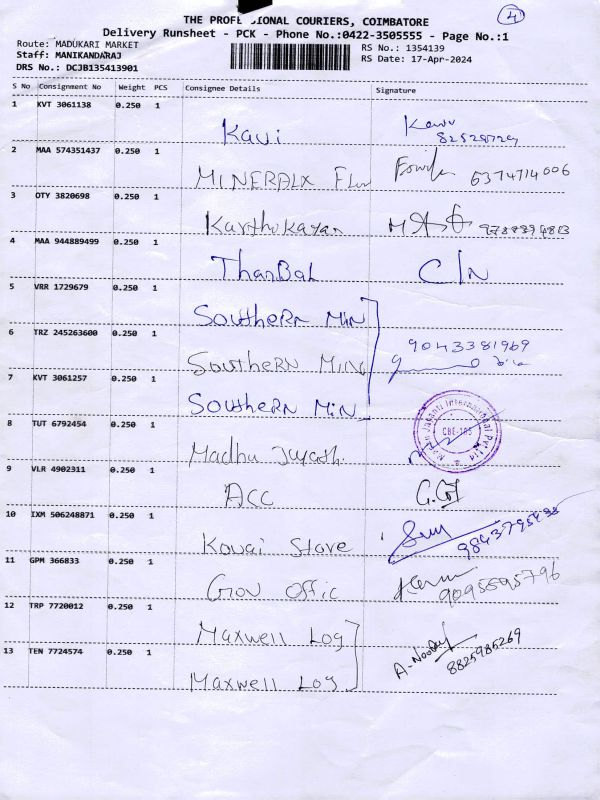 4
THE PROFE IONAL COURIERS, COIMBATORE
Delivery Runsheet - PCK - Phone No.:0422-3505555 - Page No.:1
Route: MADUKARI MARKET
Staff: MANIKANDARAJ
DRS No.: DCJB135413901
RS No.: 1354139
RS Date: 17-Apr-2024
S No Consignment No Weight PCS Consignee Details Signature
1 KVT 3061138 0.250 1
Kavi
2 MAA 574351437 0.250 1
MINERALX 6374714006
3 OTY 3820698 0.250 1
Karthikayan
4 MAA 944889499 0.250 1
ThanBal C/N
5 VRR 1729679 0.250 1
Southern Min
6 TRZ 245263600 0.250 1
9043381969
Southern Min
7 KVT 3061257 0.250 1
Southern Min
CBE-105
8 TUT 6792454 0.250 1
Madhu
9 VLR 4902311 0.250 1
ACC
10 IXM 506248871 0.250 1
Kovai Store
11 GPM 366833 0.250 1
Gov Offic 9095595796
12 TRP 7720012 0.250 1
Maxwell Log
13 TEN 7724574 0.250 1
8825985269
Maxwell Log